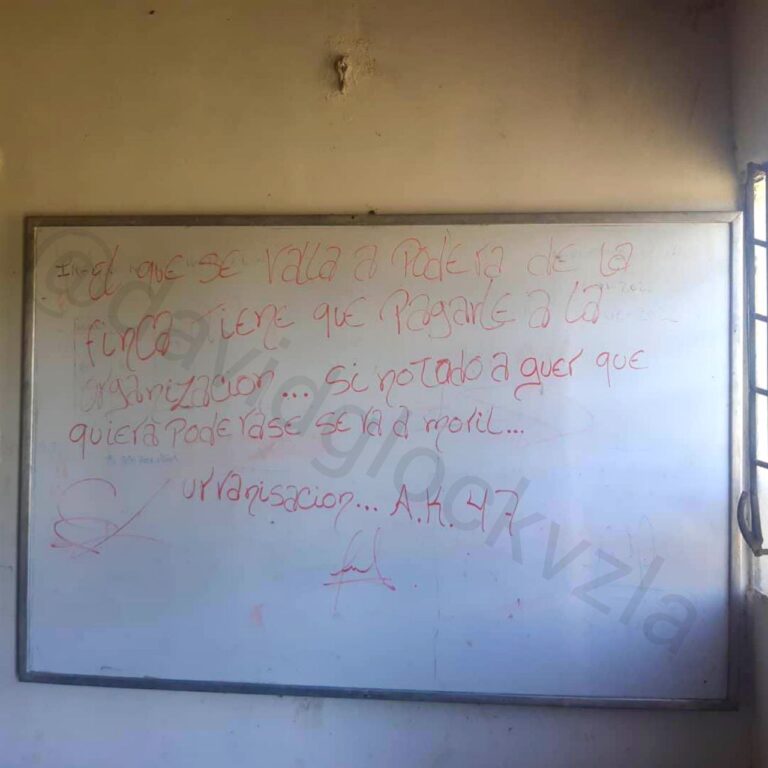 el que se valla a Podera de la
finca Tiene que Pagarle a la
organizacion... si no todo a quer que
quiera Poderase sera a moril...
urvanisacion... A.K. 47
@davidglockvzla